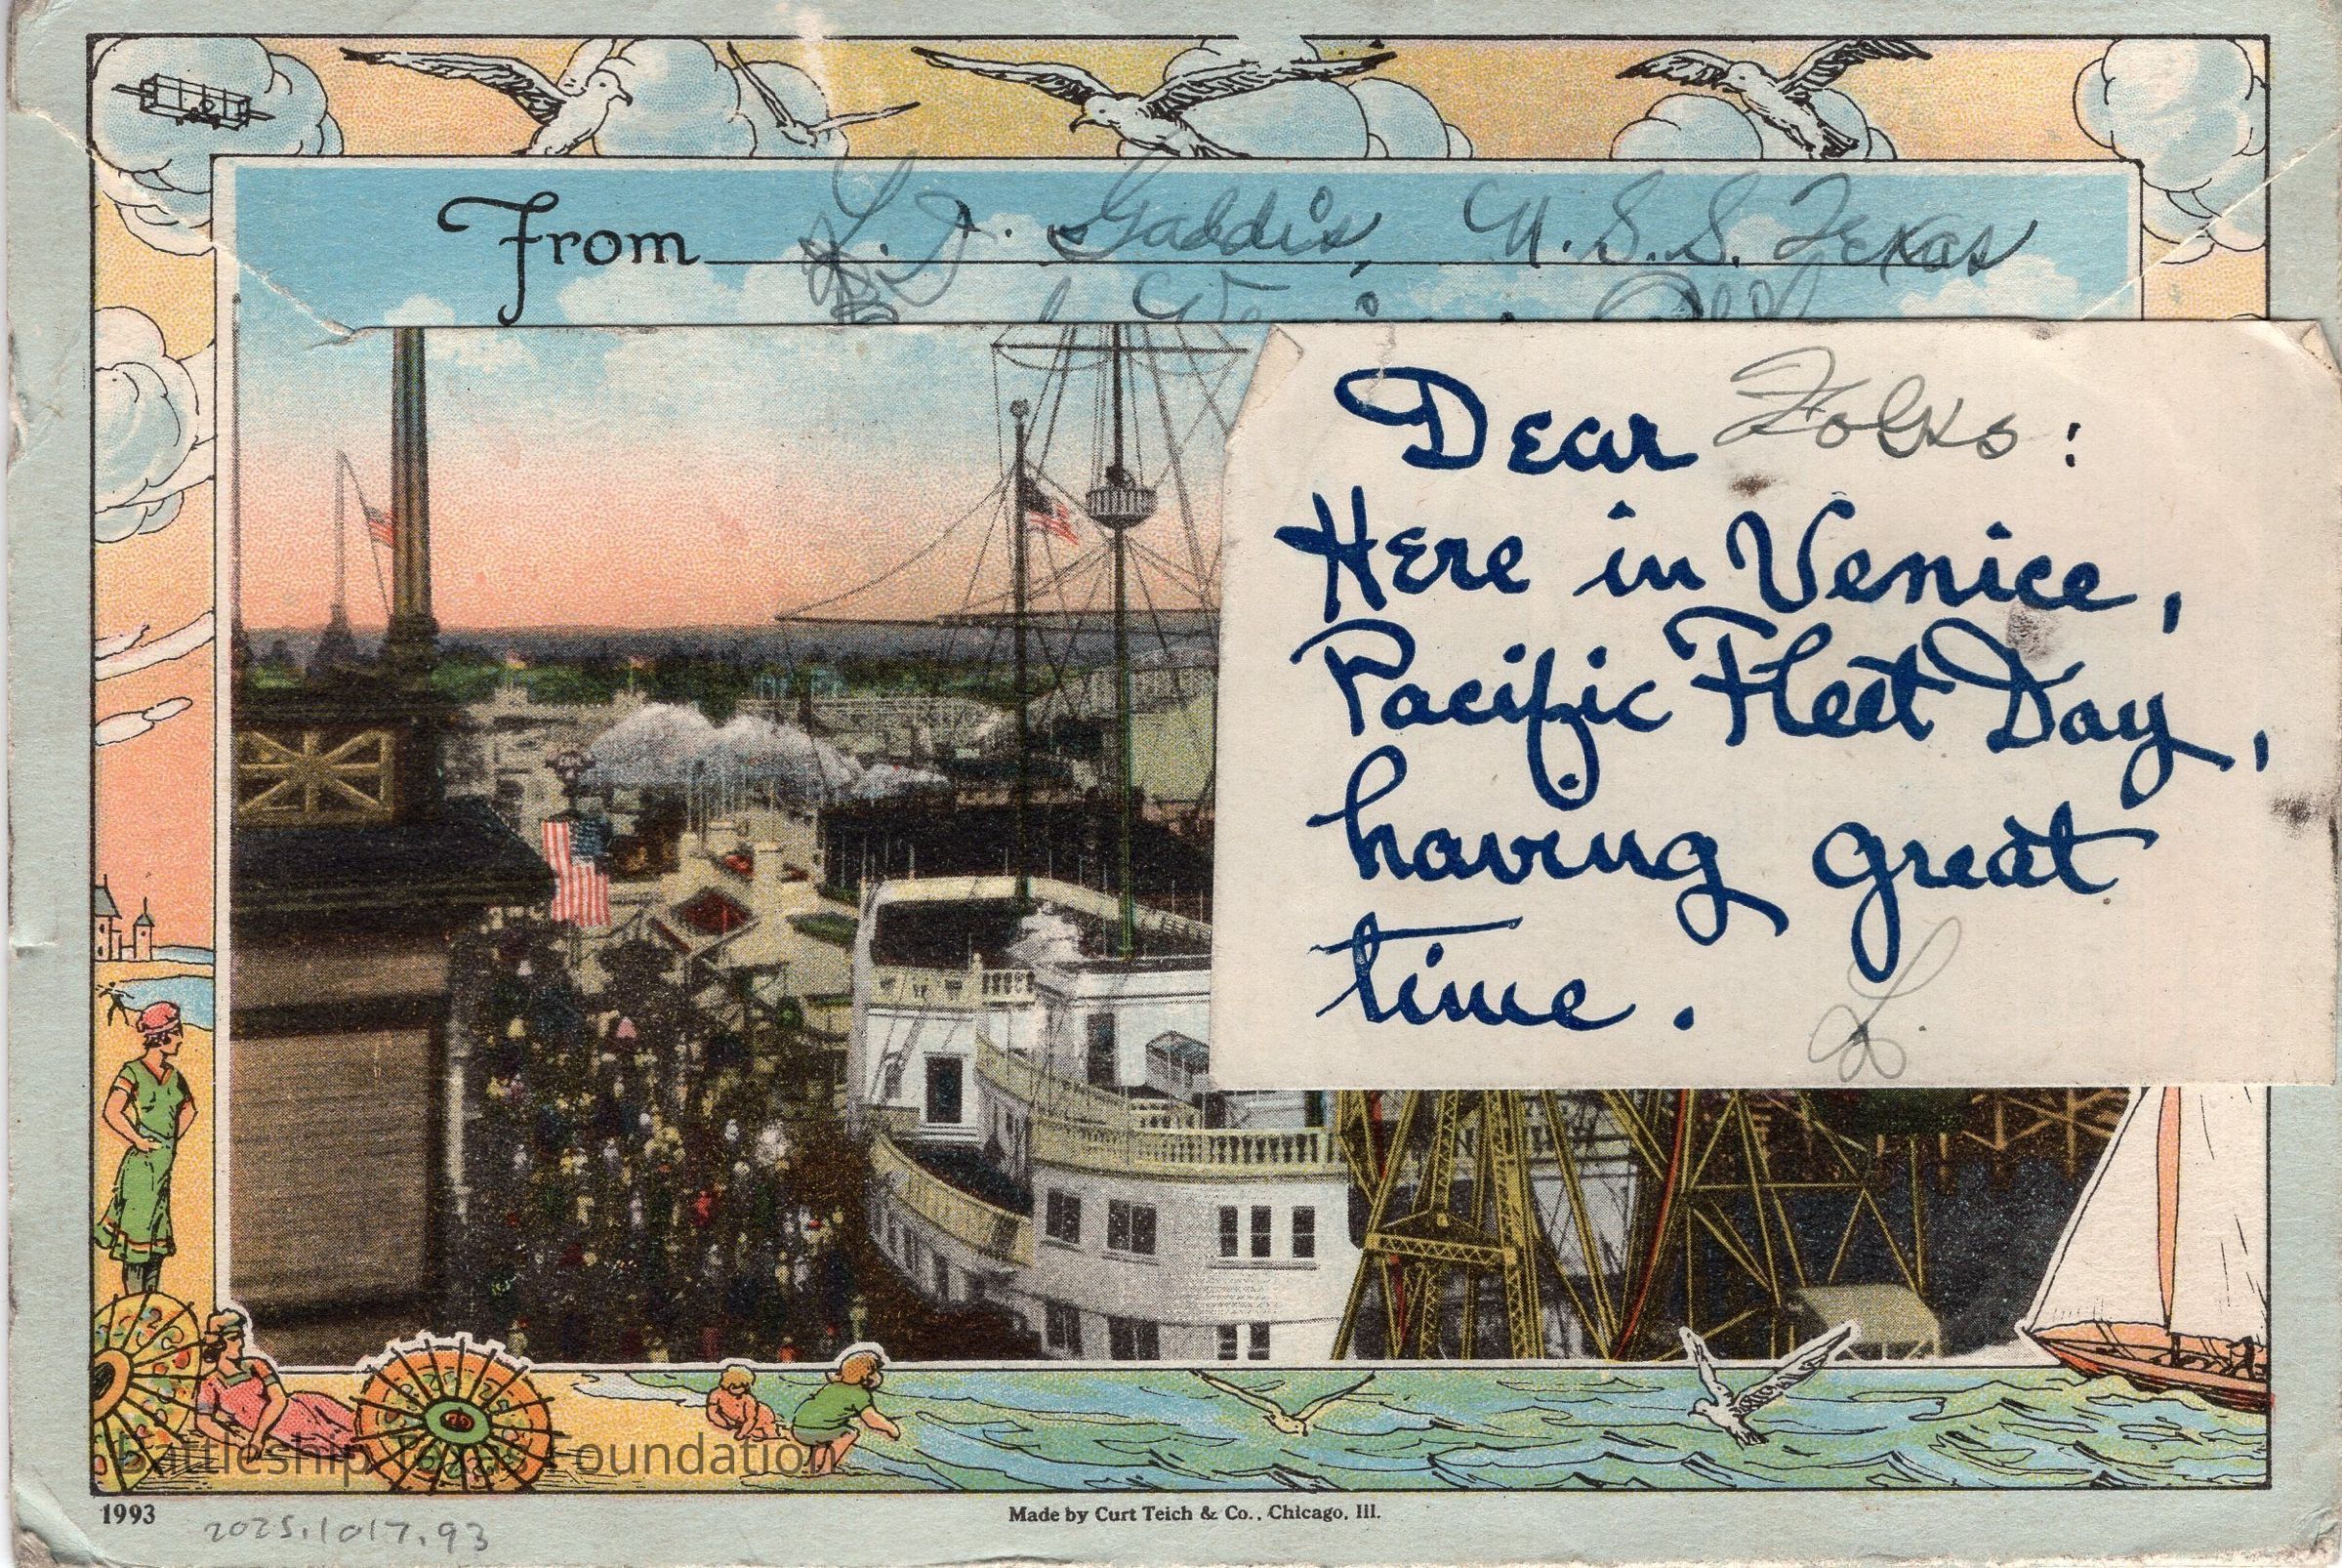 From L. J. Gaddis, U.S.S. Texas
Dear Folks:
Here in Venice,
Pacific Fleet Day,
having great
time.
L.
Battleship Texas Foundation
1993
2025.1017.93
Made by Curt Teich & Co., Chicago, Ill.